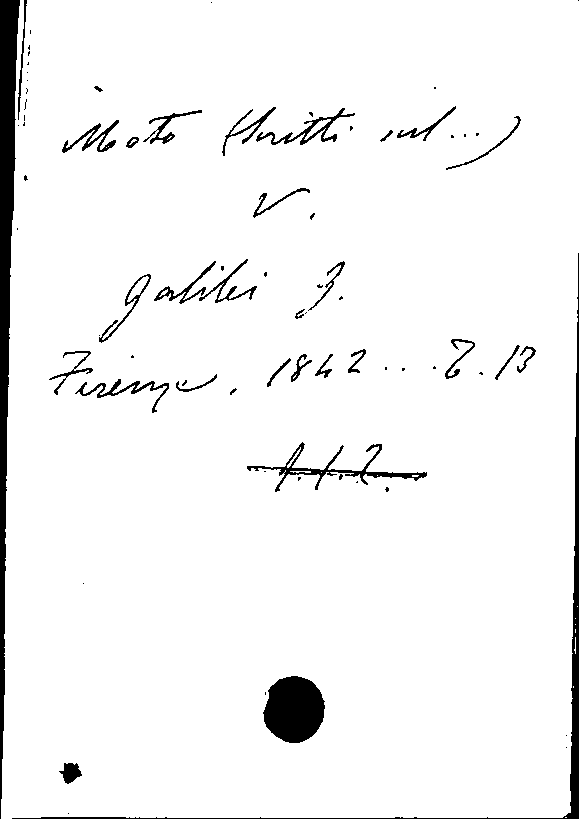 Moto (Scritti sul...)
V.
Galilei G.
Firenze, 1842.... T. 13